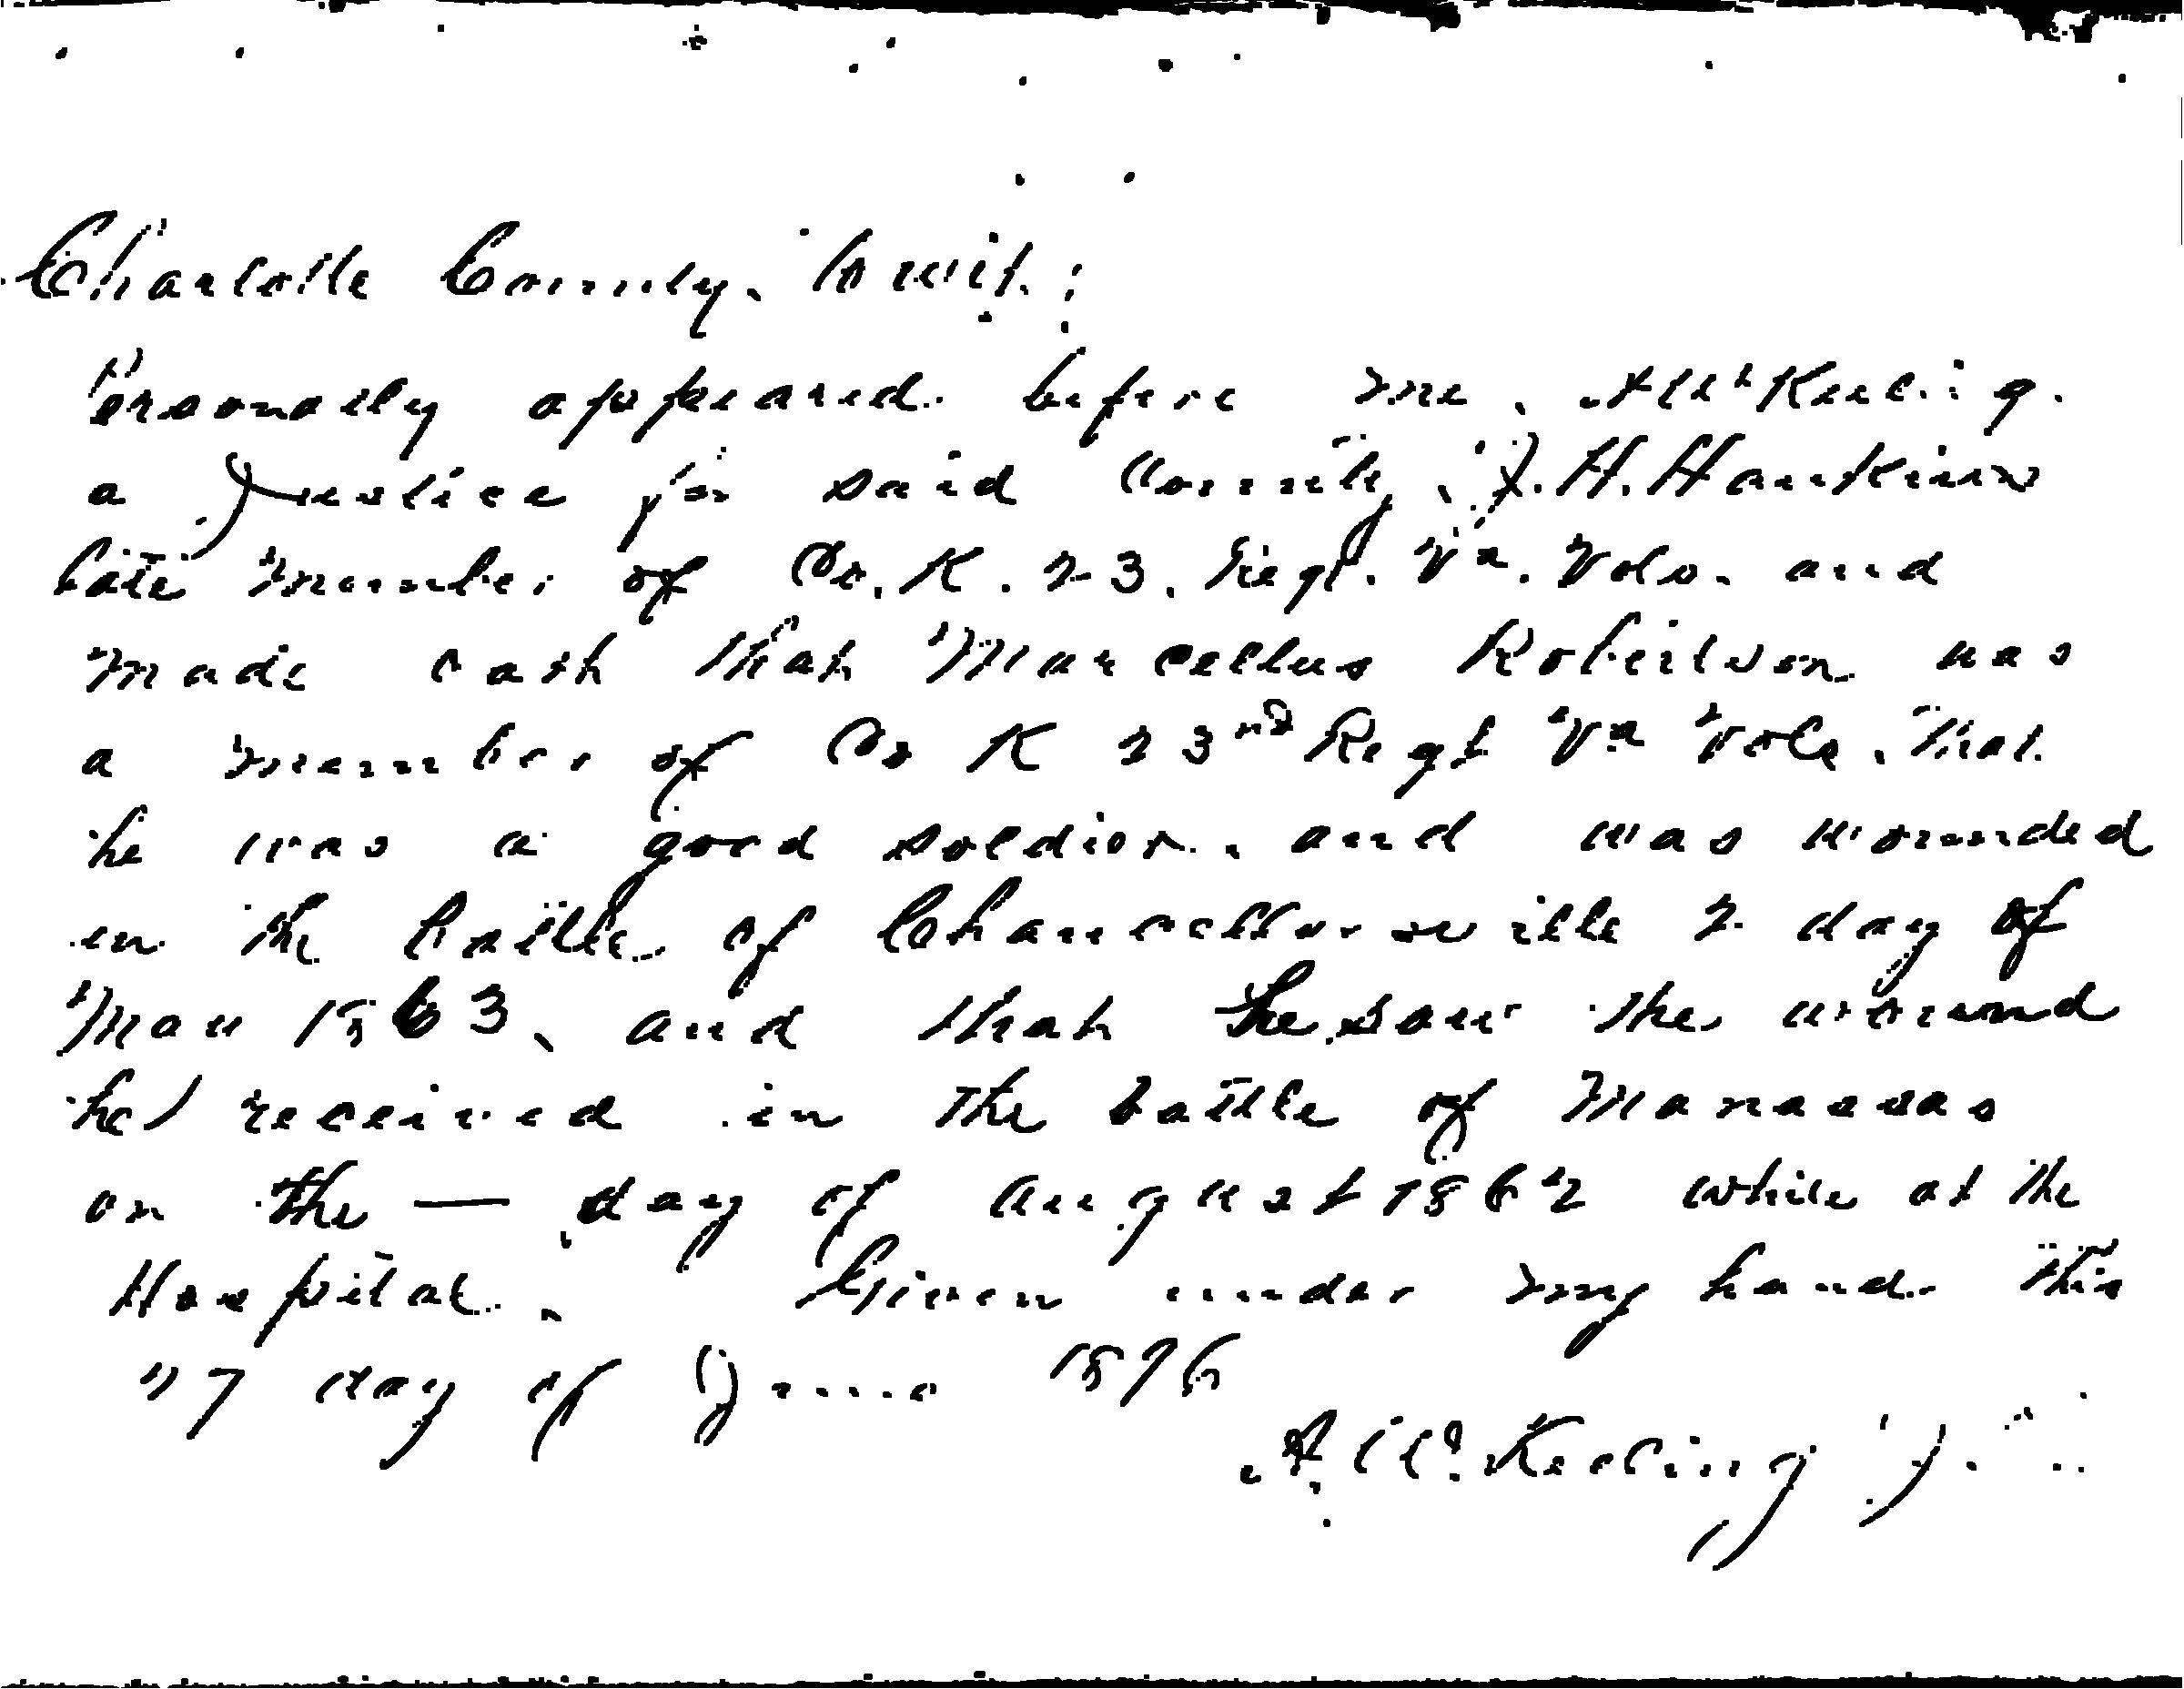 Charlotte County, to wit:
Personally appeared before me, A W Keeling
a Justice for said County, J. H. Hankins
late member of Co. K. 23. Regt. Va. Vols. and
made oath that Marcellus Robertson was
a member of Co K 23rd Regt Va Vols, That
he was a good soldier, and was wounded
in the battle of Chancellorsville 2 day of
May 1863, and that he saw the wound
he received in the battle of Manassas
on the — day of August 1862 while at the
Hospital. Given under my hand this
27 day of June 1896
A. W. Keeling J.